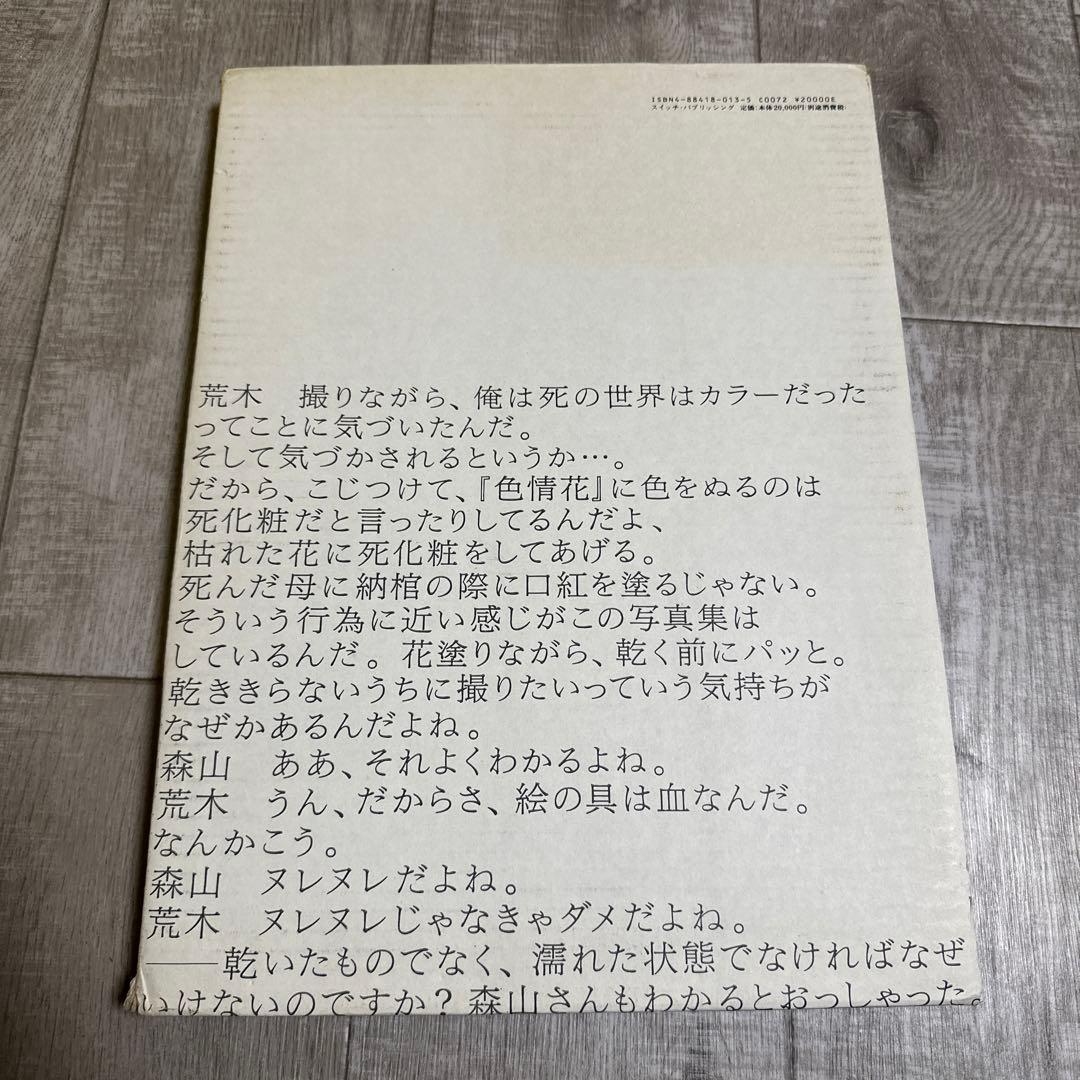 ISBN4-88418-013-5 C0072 ¥20000E
スイッチ・パブリッシング 定価:本体20,000円(別途消費税)
荒木　撮りながら、俺は死の世界はカラーだった
ってことに気づいたんだ。
そして気づかされるというか…。
だから、こじつけて、『色情花』に色をぬるのは
死化粧だと言ったりしてるんだよ、
枯れた花に死化粧をしてあげる。
死んだ母に納棺の際に口紅を塗るじゃない。
そういう行為に近い感じがこの写真集は
しているんだ。花塗りながら、乾く前にパッと。
乾ききらないうちに撮りたいっていう気持ちが
なぜかあるんだよね。
森山　ああ、それよくわかるよね。
荒木　うん、だからさ、絵の具は血なんだ。
なんかこう。
森山　ヌレヌレだよね。
荒木　ヌレヌレじゃなきゃダメだよね。
――乾いたものでなく、濡れた状態でなければなぜ
いけないのですか？ 森山さんもわかるとおっしゃった。